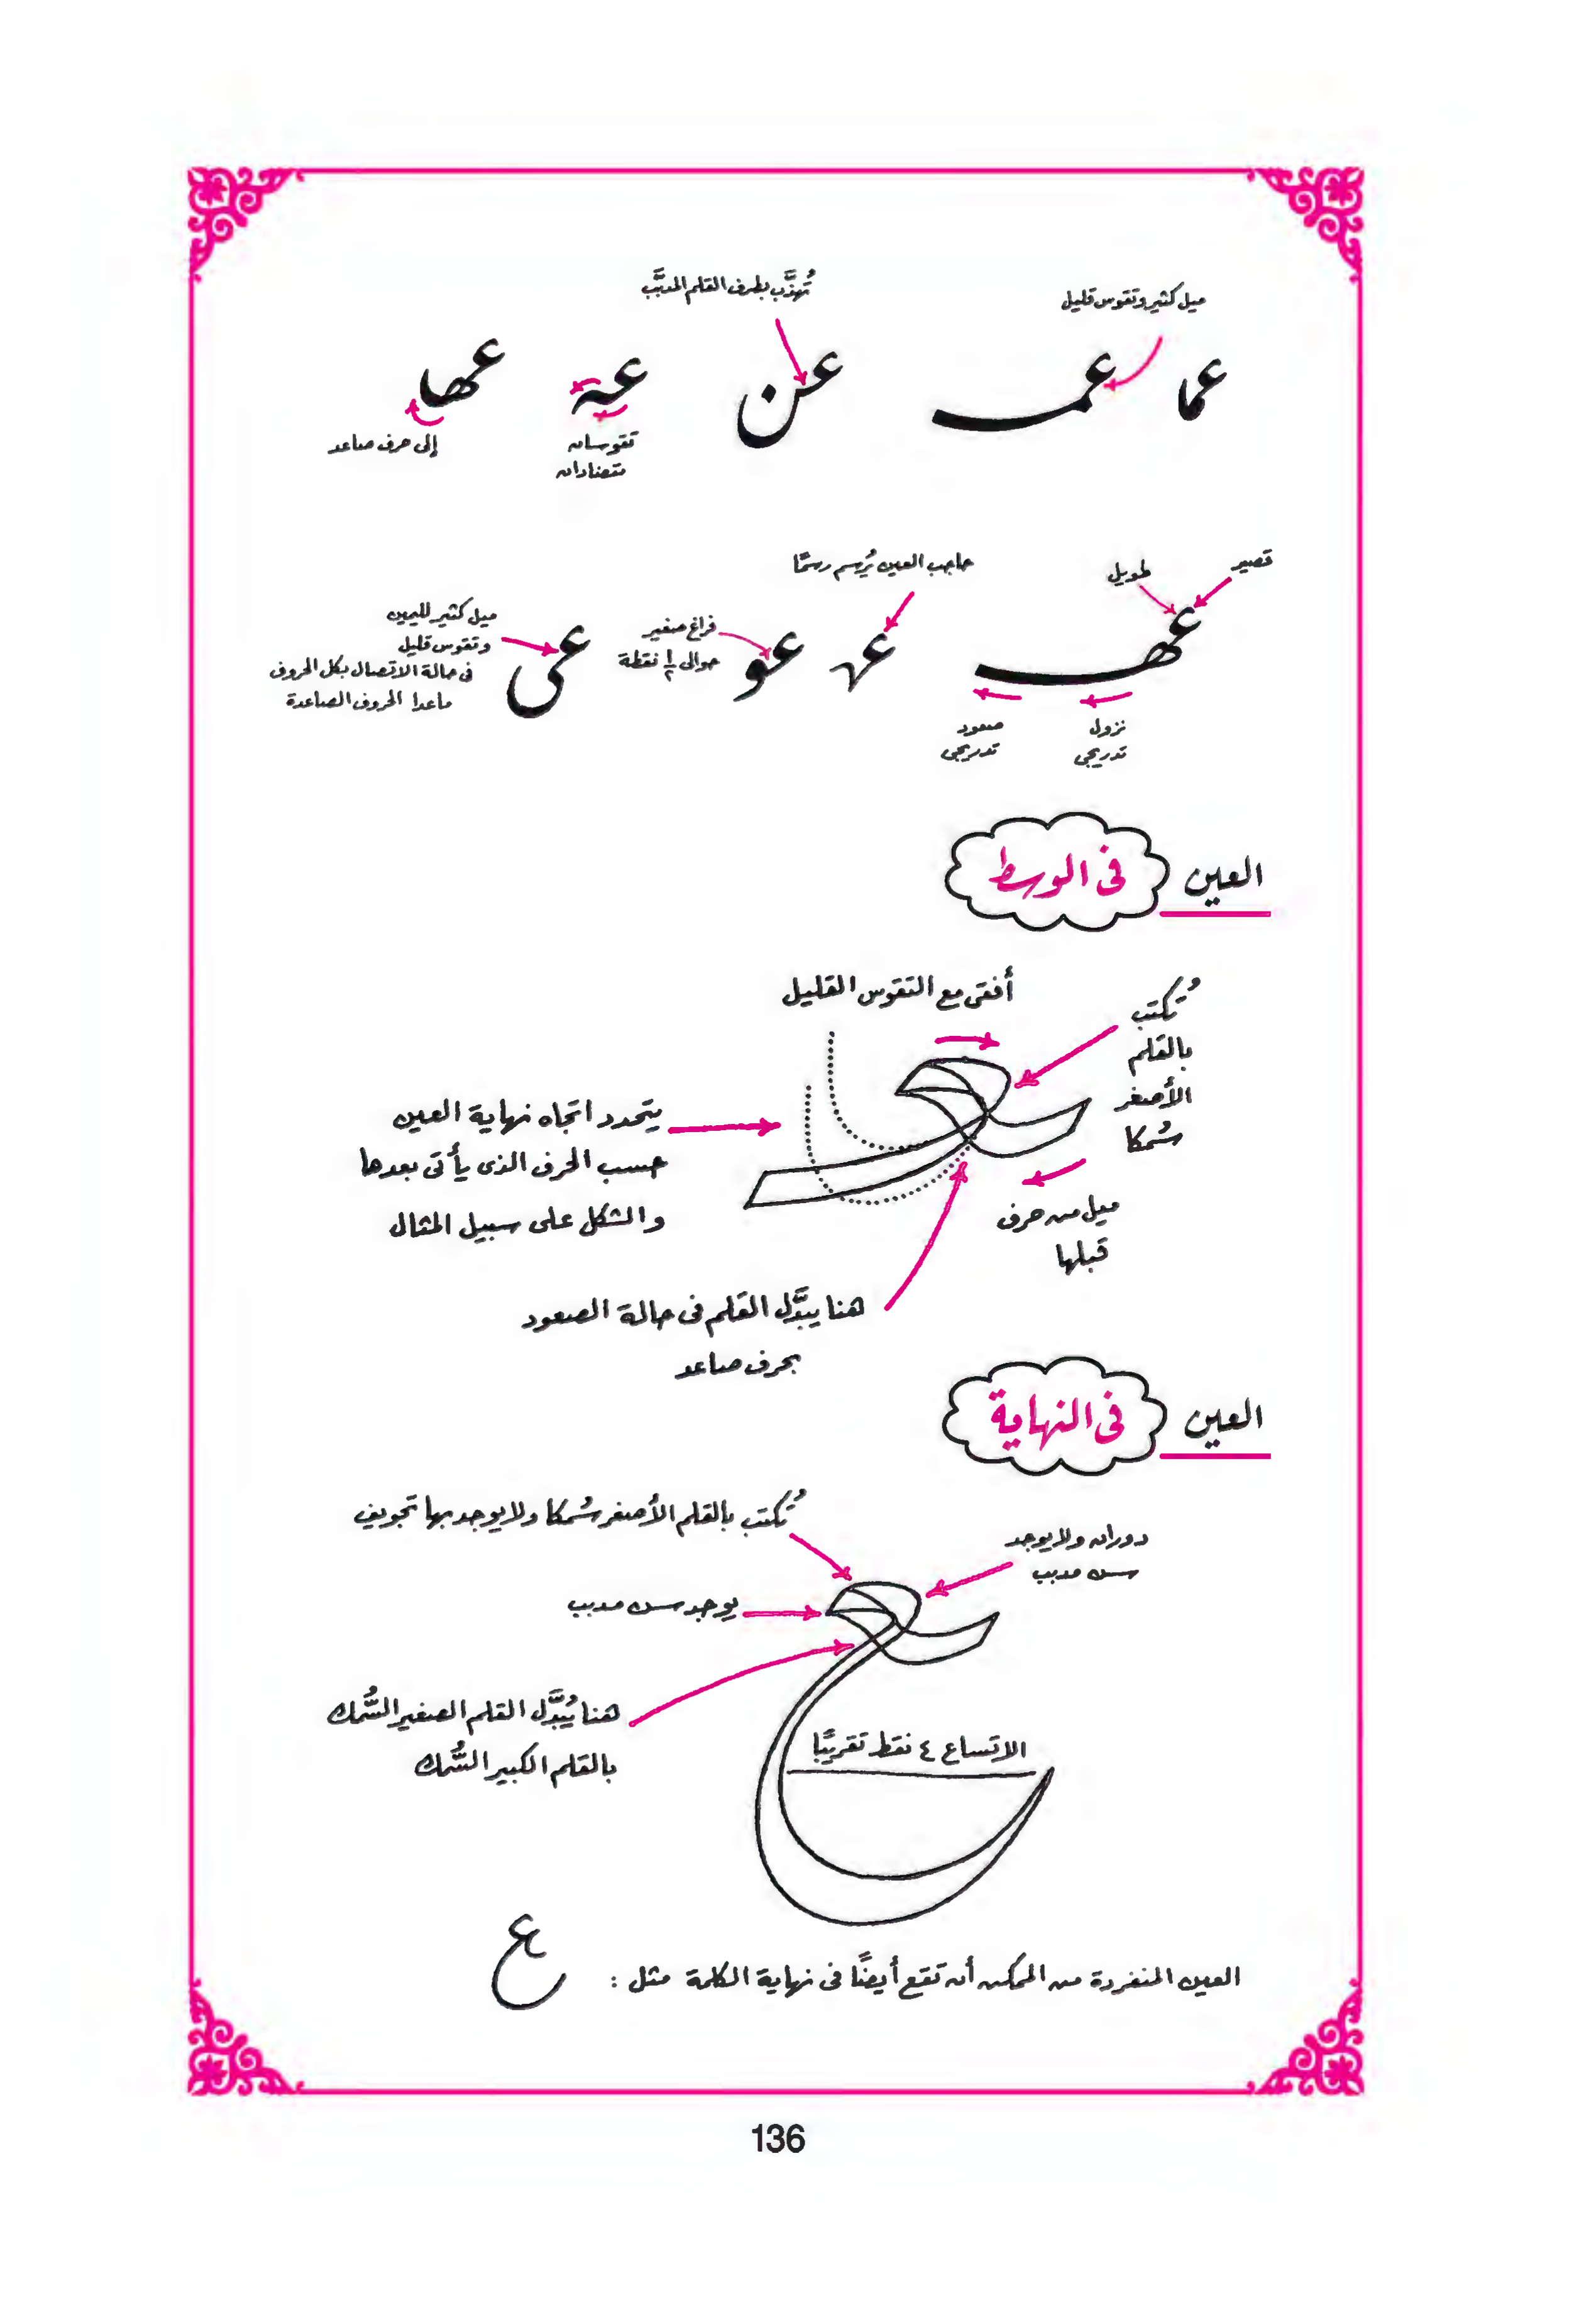 ميل كثير وتقوس قليل
تُهذَّب بطرف القلم المدبَّب
عما عمـ عن عـة عمها
تقوسان
متضادان
إلى حرف صاعد
قصير
طويل
حاجب العين يُرسم رسمًا
فراغ صغير
حوالى ١/٢ نقطة
ميل كثير لليمين
وتقوس قليل
فى حالة الاتصال بكل الحروف
ماعدا الحروف الصاعدة
عهـ عـر عو عى
نزول
تدريجى
صعود
تدريجى
العين فى الوسط
أفقى مع التقوس القليل
تُكتب
بالقلم
الأصغر
سُمكا
يتحدد اتجاه نهاية العين
حسب الحرف الذى يأتى بعدها
والشكل على سبيل المثال
ميل من حرف
قبلها
هنا يبدَّل القلم فى حالة الصعود
بحرف صاعد
العين فى النهاية
تُكتب بالقلم الأصغر سُمكا ولا يوجد بها تجويف
دوران ولا يوجد
سن مدبب
يوجد سن مدبب
هنا يُبدَّل القلم الصغير السُّمك
بالقلم الكبير السُّمك
الاتساع ٤ نقط تقريبًا
العين المنفردة من الممكن أن تقع أيضًا فى نهاية الكلمة مثل : ع
136